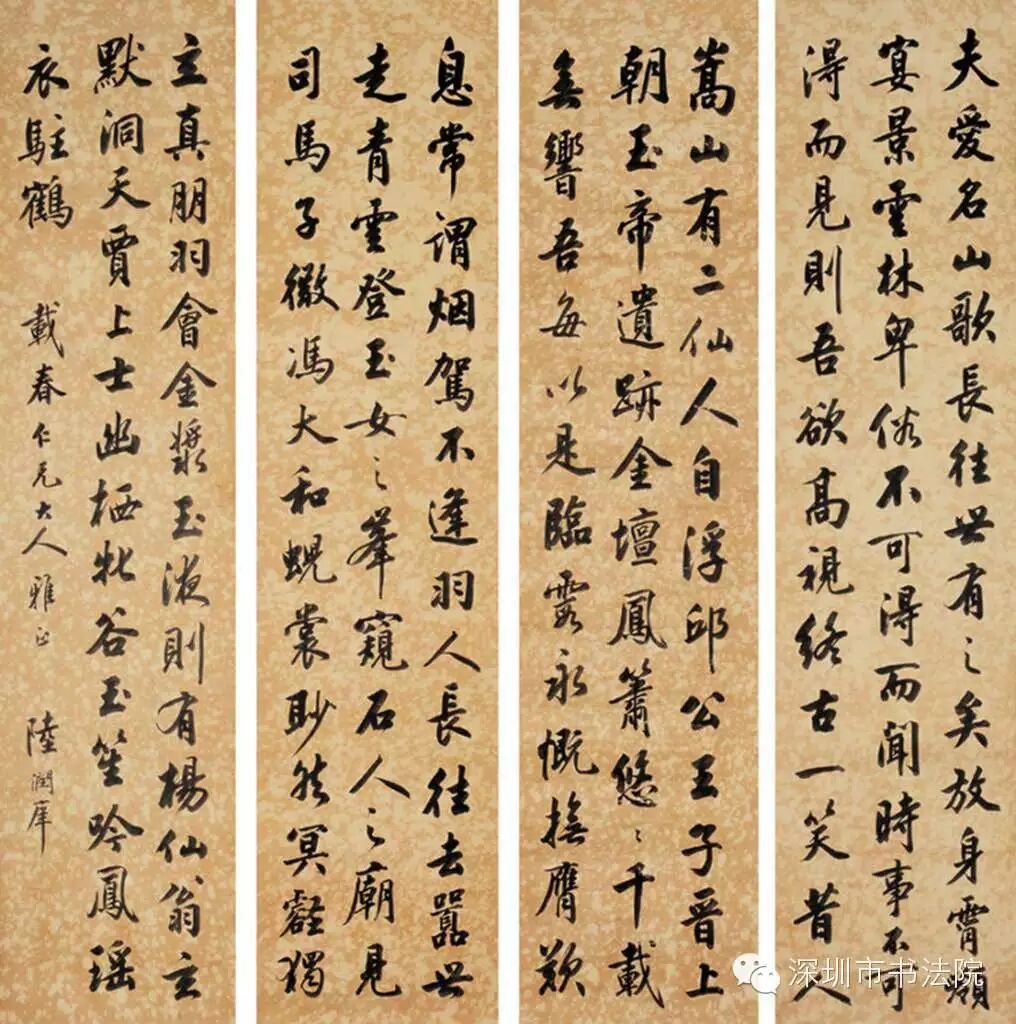 夫愛名山歌長往世有之矣放身霄嶺
宴景雲林卑俗不可得而聞時事不可
得而見則吾欲高視終古一笑昔人
嵩山有二仙人自浮邱公王子晉上
朝玉帝遺跡金壇鳳簫悠〻千載
無響吾每以是臨霞永慨撫膺歎
息常謂烟駕不逢羽人長往去囂世
走青雲登玉女之峯窺石人之廟見
司馬子微馮大和蜺裳眇然冥壑獨
立真朋羽會金漿玉液則有楊仙翁玄
默洞天賈上士幽栖牝谷玉笙吟鳳瑤
衣駐鶴
載春仁兄大人雅正
陸潤庠
深圳市书法院